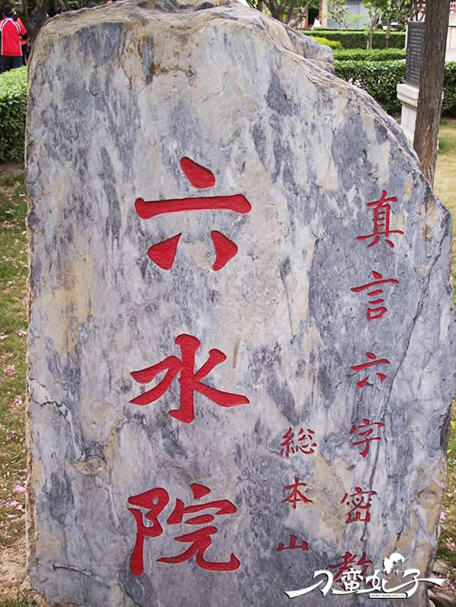 真言六字密教
総本山
六水院
刁蛮妃子